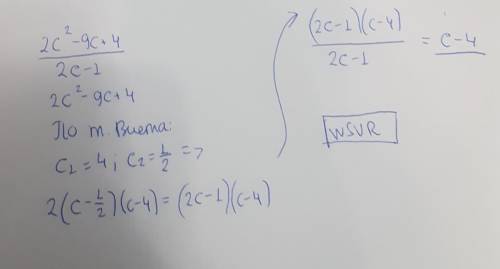 2c² - 9c + 4
2c - 1
2c² - 9c + 4
По т. Виета:
c₁ = 4; c₂ = 1/2 =>
2(c - 1/2)(c - 4) = (2c - 1)(c - 4)
(2c - 1)(c - 4)
2c - 1
= c - 4
WSVR